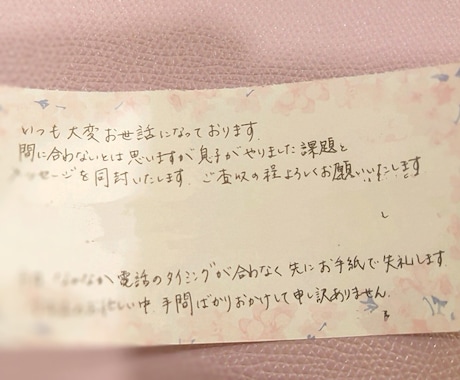 いつも大変お世話になっております.
間に合わないとは思いますが息子がやりました課題と
メッセージを同封いたします. ご査収の程よろしくお願いいたします
電話のタイミングが合わなく先にお手紙で失礼します
中 手間ばかりおかけして申し訳ありません.